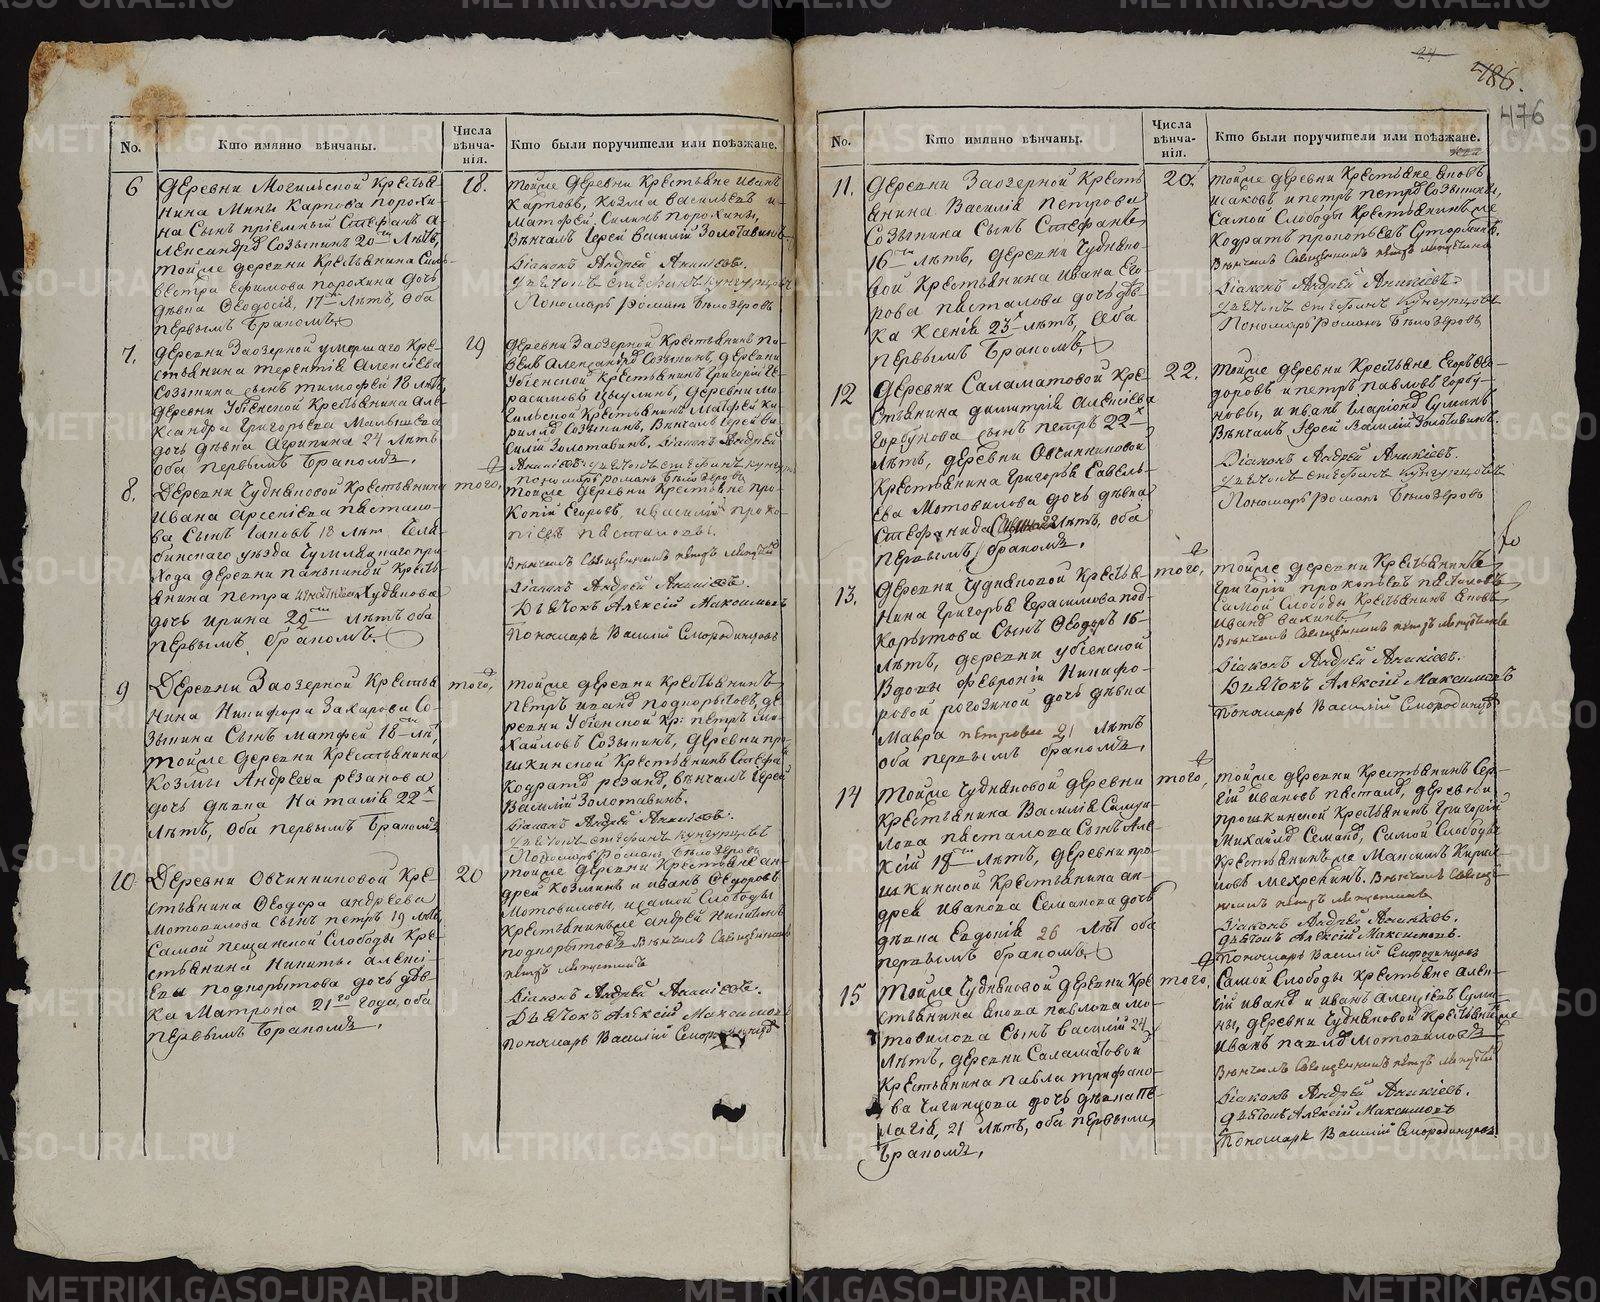 No.
Кто имянно вѣнчаны.
Числа
вѣнча-
нія.
Кто были поручители или поѣзжане.
6
Деревни Могильской Кресьтья-
нина Мины Карпова Порохи-
на Сынъ пріемный Стефанъ А-
лександръ Созыкинъ 20 лѣтъ,
тойже деревни Крестьянина Силь-
вестра Ефимова Порохина дочь
дѣвка Феодосія, 17 лѣтъ, Оба
первымъ Бракомъ
18.
тойже деревни Крестьяне Иванъ
Карповъ, Козма Васильевъ и
Матфей Силинъ Порохины,
Вѣнчалъ Іерей Василій Золотавинъ.
Діаконъ Андрей Аникіевъ.
Дьячокъ Стефанъ Кунгурцовъ
Пономарь Романъ Бѣлозеровъ
7.
Деревни Заозерной умершаго Кре-
стьянина Терентія Алексѣева
Созыкина сынъ Тимофей 18 лѣтъ
деревни Убіенской Крестьянина Але-
ксандра Григорьева Малышева
дочь дѣвка Агрипина 24 лѣтъ
оба первымъ Бракомъ,
19
деревни Заозерной Крестьянинъ Па-
велъ Александръ Созыкинъ, деревни
Убіенской Крестьянинъ Григорій Ге-
расимовъ Цыулинъ, деревни Мо-
гильской Крестьянинъ Матфей Ки-
риллъ Созыкинъ, Вѣнчалъ Іерей Ва-
силій Золотавинъ, Діаконъ Андрей
Аникіевъ, Дьячокъ Стефанъ Кунгур
Пономарь Романъ Бѣлозеровъ
8.
Деревни Чудняковой Крестьянина
Ивана Арсеніева Пастало-
ва Сынъ Іаковъ 18 лѣтъ Челя-
бинскаго уѣзда Чумляцкаго при-
хода деревни Панькиной Кресть-
янина Петра Худякова
дочь Ирина 22 лѣтъ оба
первымъ бракомъ
того,
тойже деревни Крестьяне Про-
копій Егоровъ, и Василій Проко-
піевъ Пасталовы.
Вѣнчалъ Священникъ Петръ
Діаконъ Андрей Аникіевъ.
Дьячокъ Алексій Максимовъ
Пономарь Василій Смородинцовъ
9
Деревни Заозерной Крестья-
нина Никифора Захарова Со-
зыкина Сынъ Матфей 18 лѣтъ,
тойже деревни Крестьянина
Козмы Андреева Резанова
дочь дѣвка Наталія 22
лѣтъ, Оба первымъ Бракомъ
того,
тойже деревни Крестьянинъ
Петръ Иванъ Подкорытовъ, де-
ревни Убіенской Кр: Петръ Ми-
хайловъ Созыкинъ, деревни Про-
шкинской Крестьянинъ Стефа
Кодратъ Резанъ, Вѣнчалъ Іерей
Василій Золотавинъ.
Діаконъ Андрей Аникіевъ.
Дьячокъ Стефанъ Кунгурцовъ
Пономарь Романъ Бѣлозеровъ
10
Деревни Овчинниковой Кре-
стьянина Феодора Андреева
Мотовилова Сынъ Петръ 19 лѣтъ
Самой Пещанской Слободы Кре-
стьянина Никиты Алексі-
евы Подкорытова дочь дѣв-
ка Матрона 21 года, оба
первымъ Бракомъ,
20
тойже деревни Крестьяне Ан-
дрей Козминъ и Иванъ Феодоровъ
Мотовиловы, и самой Слободы
Крестьянинъ же Андрей Никитинъ
Подкорытовъ Вѣнчалъ Священникъ
Петръ
Діаконъ Андрей Аникіевъ.
Дьячокъ Алексій Максимовъ
Пономарь Василій Смородинцовъ
24
486.
476
No.
Кто имянно вѣнчаны.
Числа
вѣнча-
нія.
Кто были поручители или поѣзжане.
11.
Деревни Заозерной Кресть-
янина Василія Петрова
Созыкина Сынъ Стефанъ
16 лѣтъ, деревни Чудняко-
вой Крестьянина Ивана Его-
рова Пасталова дочь дѣв-
ка Ксенія 23 лѣтъ, Оба
первымъ Бракомъ,
20.
тойже деревни Крестьяне Яковъ
Исаковъ и Петръ Петръ Созыкины,
Самой Слободы Крестьянинъ же
Кодратъ Прокопьевъ Суторминъ.
Вѣнчалъ Священникъ Петръ
Діаконъ Андрей Аникіевъ.
Дьячокъ Стефанъ Кунгурцовъ
Пономарь Романъ Бѣлозеровъ
12
Деревни Саламатовой Кре-
стьянина Димитрія Алексіева
Горбунова сынъ Петръ 22
лѣтъ, деревни Овчинниковой
Крестьянина Григорья Савель-
ева Мотовилова дочь дѣвка
Стефанида 22 лѣтъ, оба
первымъ бракомъ.
22.
тойже деревни Крестьяне Егоръ Фео-
доровъ и Петръ Павловъ Горбу-
новы, и Иванъ Иларіонъ Суминъ
Вѣнчалъ Іерей Василій Золотавинъ.
Діаконъ Андрей Аникіевъ.
Дьячокъ Стефанъ Кунгурцовъ
Пономарь Романъ Бѣлозеровъ
13.
Деревни Чудняковой Крестья-
нина Григорья Герасимова Под-
корытова Сынъ Феодоръ 16
лѣтъ, деревни Убіенской
Вдовы Февроніи Никифо-
ровой Рогозиной дочь дѣвка
Мавра Петрова 21 лѣтъ
оба первымъ бракомъ,
того,
тойже деревни Крестьянинъ
Григорій Прокопьевъ Пасталовъ
Самой Слободы Крестьянинъ Яковъ
Иванъ Вахинъ
Вѣнчалъ Священникъ Петръ
Діаконъ Андрей Аникіевъ.
Дьячокъ Алексій Максимовъ
Пономарь Василій Смородинцовъ
14
Тойже Чудняковой деревни
Крестьянина Василія Самуи-
лова Пасталова Сынъ Але-
ксій 18 лѣтъ, деревни Про-
шкинской Крестьянина Ан-
дрея Иванова Семакова дочь
дѣвка Евдокія 26 лѣтъ оба
первымъ бракомъ.
того,
тойже деревни Крестьянинъ Сер-
гій Ивановъ Пасталъ, деревни
Прошкинской Крестьянинъ Григорій
Михайлъ Семакъ, Самой Слободы
Крестьянинъ же Максимъ Кирил-
ловъ Мехрекинъ. Вѣнчалъ Священ-
никъ Петръ
Діаконъ Андрей Аникіевъ.
Дьячокъ Алексій Максимовъ.
Пономарь Василій Смородинцовъ
15
Тойже Чудняковой деревни Кре-
стьянина Якова Павлова Мо-
товилова Сынъ Василій 24
лѣтъ, деревни Саламатовой
Крестьянина Павла Трифано-
ва Чигинцова дочь дѣвка Пе-
лагія, 21 лѣтъ, оба первымъ
Бракомъ,
того,
Самой Слободы Крестьяне Алек-
сій Иванъ и Иванъ Алексіевъ Суми-
ны, деревни Чудняковой Крестьянинъ же
Иванъ Павлъ Мотовиловъ
Вѣнчалъ Священникъ Петръ
Діаконъ Андрей Аникіевъ.
Дьячокъ Алексій Максимовъ
Пономарь Василій Смородинцовъ.
METRIKI.GASO-URAL.RU